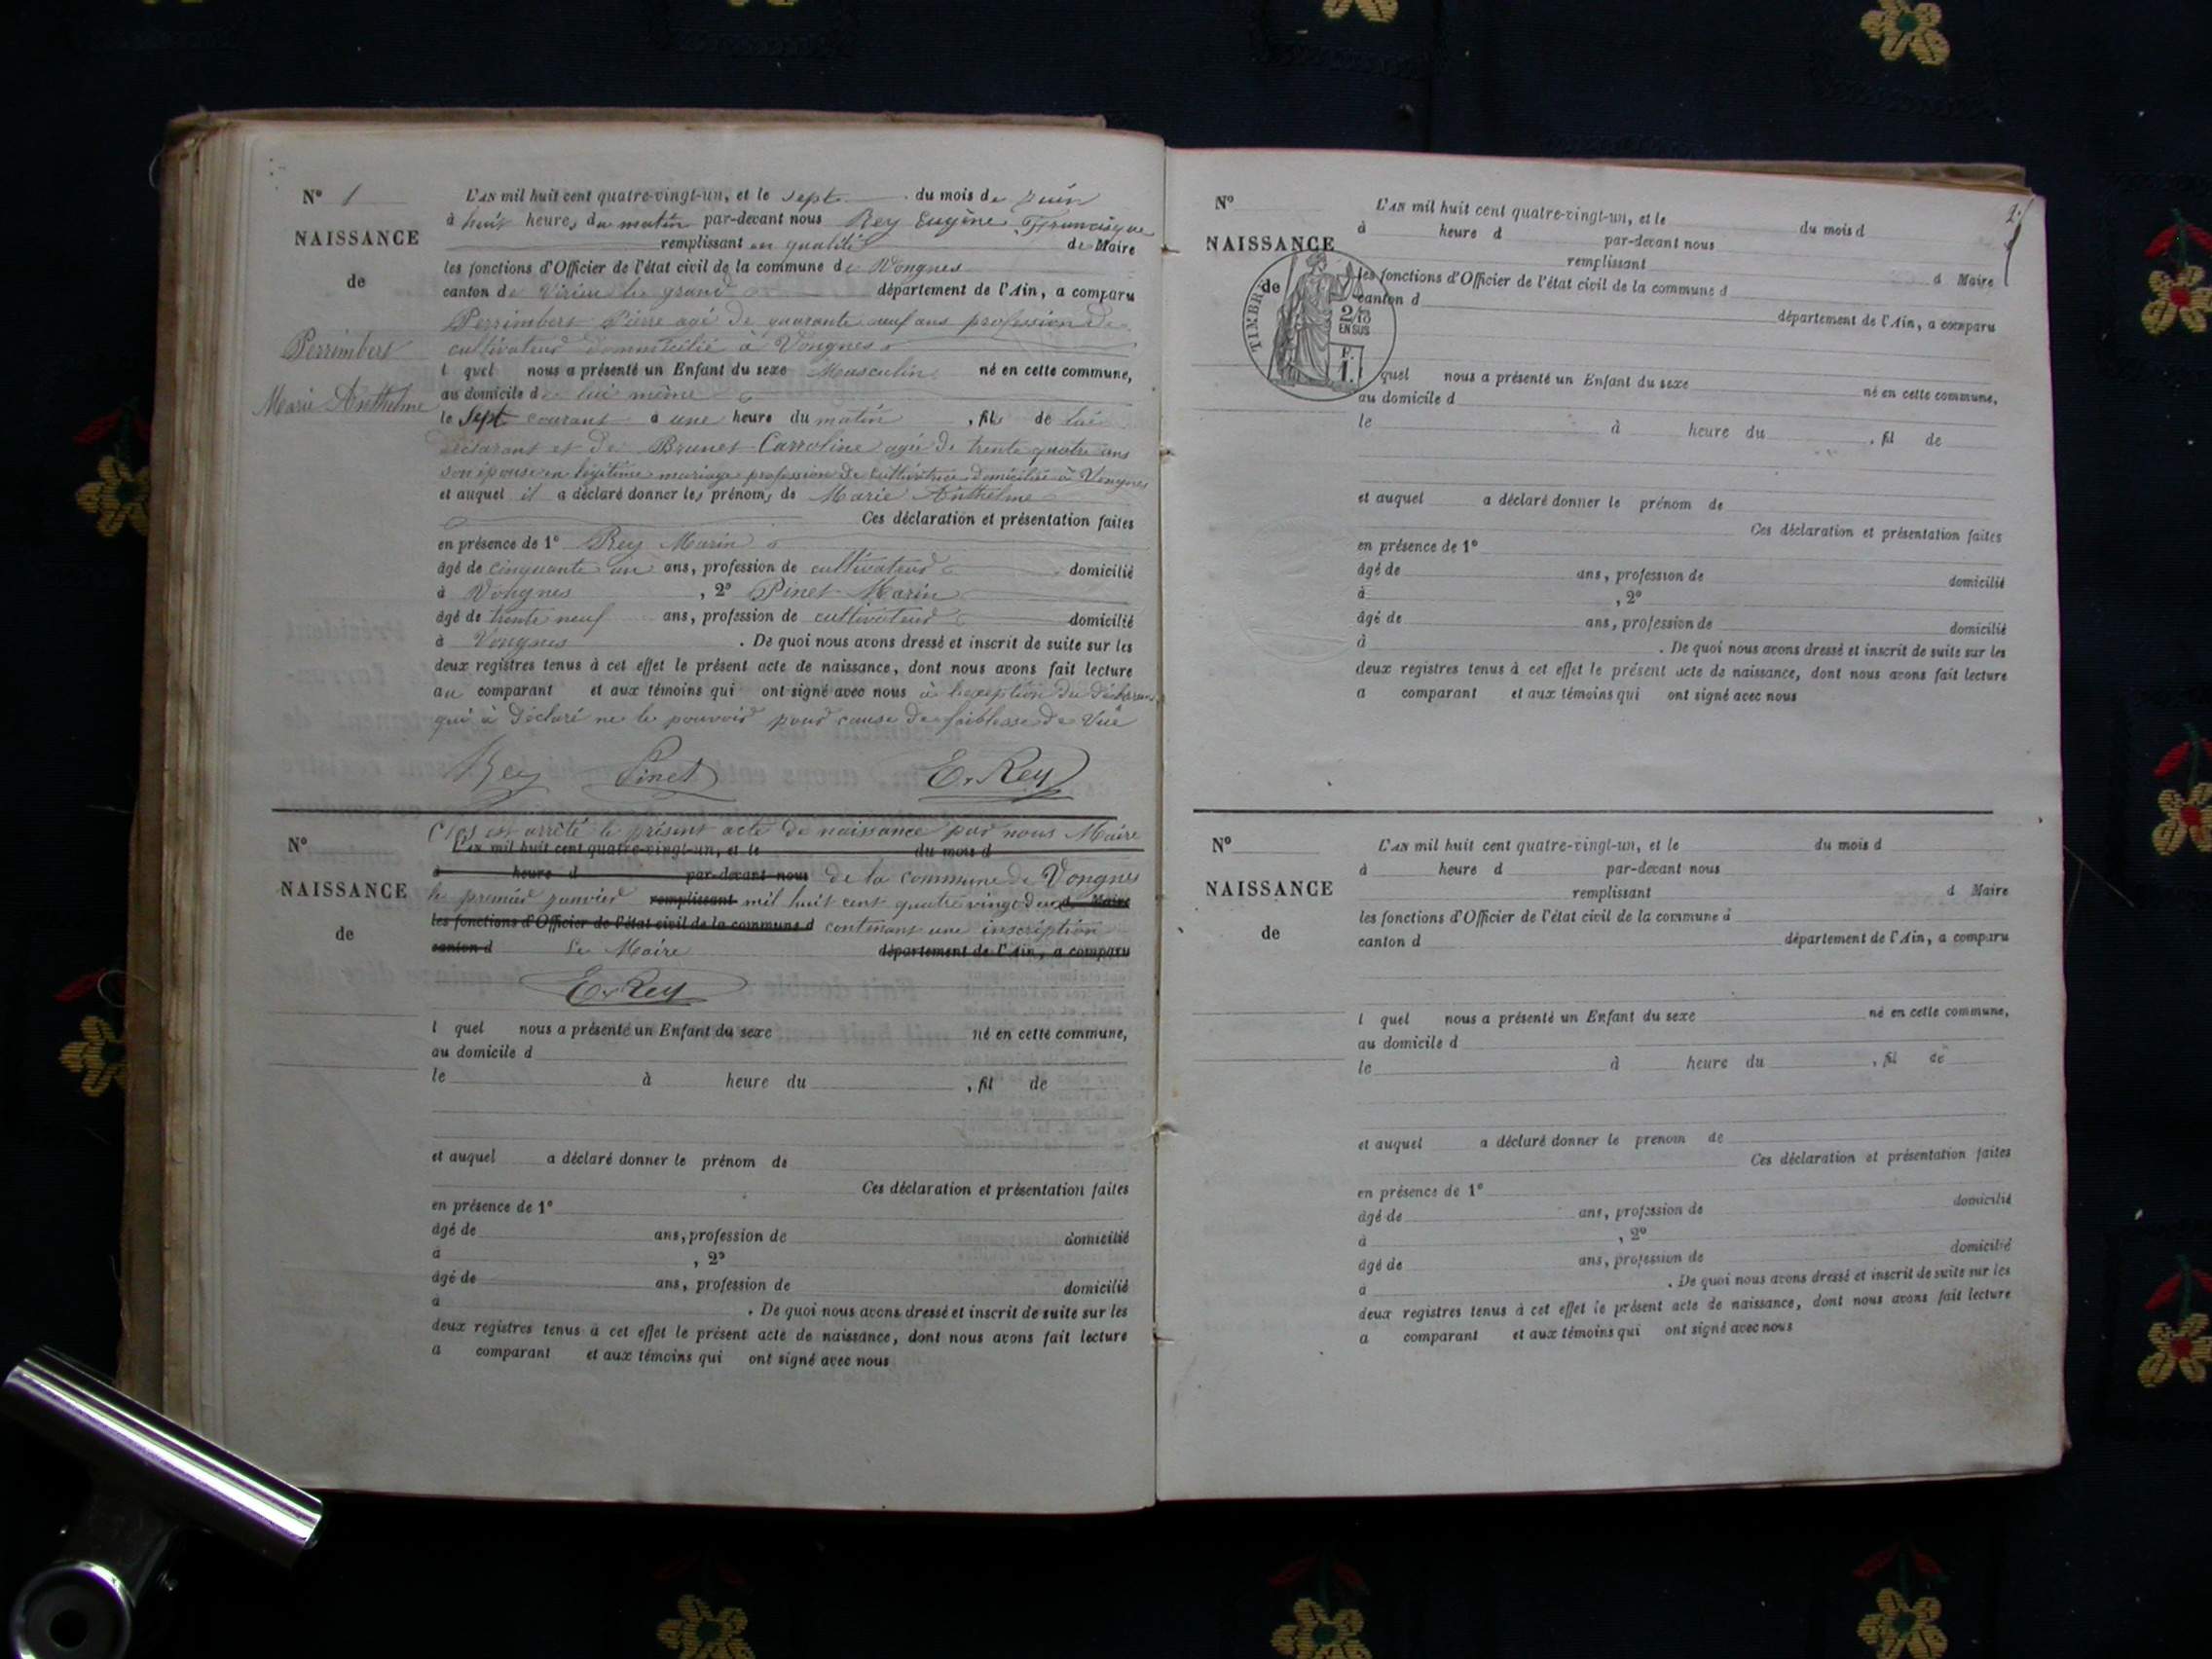 N° 1
NAISSANCE
de
Perrimbert
Marie Anthelme
L'AN mil huit cent quatre-vingt-un, et le sept du mois de Juin
à huit heures du matin par-devant nous Rey Eugène Francisque
remplissant en qualité de Maire
les fonctions d'Officier de l'état civil de la commune de Vongnes
canton de Virieu le grand département de l'Ain, a comparu
Perrimbert Pierre agé de quarante neuf ans profession de
cultivateur domicilié à Vongnes
l quel nous a présenté un Enfant du sexe Masculin né en cette commune,
au domicile de lui même
le Sept courant à une heure du matin, fils de lui
déclarant et de Brunet Carroline agée de trente quatre ans
son épouse en légitime mariage profession de cultivatrice domiciliée à Vongnes
et auquel il a déclaré donner les prénoms de Marie Anthelme
Ces déclaration et présentation faites
en présence de 1° Rey Marin
âgé de cinquante un ans, profession de cultivateur domicilié
à Vongnes, 2° Pinet Marin
âgé de trente neuf ans, profession de cultivateur domicilié
à Vongnes. De quoi nous avons dressé et inscrit de suite sur les
deux registres tenus à cet effet le présent acte de naissance, dont nous avons fait lecture
au comparant et aux témoins qui ont signé avec nous à l'exception du déclarant
qui à déclaré ne le pouvoir pour cause de faiblesse de vue
Rey Pinet E. Rey
N°
NAISSANCE
de
Clos et arrêté le présent acte de naissance par nous Maire
L'AN mil huit cent quatre-vingt-un, et le du mois d
à heure d par-devant nous de la commune de Vongnes
le premier janvier remplissant mil huit cent quatre vingt deux d Maire
les fonctions d'Officier de l'état civil de la commune d contenant une inscription
canton d Le Maire département de l'Ain, a comparu
E. Rey
l quel nous a présenté un Enfant du sexe né en cette commune,
au domicile d
le à heure du , fil de
et auquel a déclaré donner le prénom de
Ces déclaration et présentation faites
en présence de 1°
âgé de ans, profession de domicilié
à , 2°
âgé de ans, profession de domicilié
à . De quoi nous avons dressé et inscrit de suite sur les
deux registres tenus à cet effet le présent acte de naissance, dont nous avons fait lecture
a comparant et aux témoins qui ont signé avec nous
2
N°
NAISSANCE
de
TIMBRE
2/10
EN SUS
F.
1.
L'AN mil huit cent quatre-vingt-un, et le du mois d
à heure d par-devant nous
remplissant d Maire
les fonctions d'Officier de l'état civil de la commune d
canton d département de l'Ain, a comparu
quel nous a présenté un Enfant du sexe né en cette commune,
au domicile d
le à heure du , fil de
et auquel a déclaré donner le prénom de
Ces déclaration et présentation faites
en présence de 1°
âgé de ans, profession de domicilié
à , 2°
âgé de ans, profession de domicilié
à . De quoi nous avons dressé et inscrit de suite sur les
deux registres tenus à cet effet le présent acte de naissance, dont nous avons fait lecture
a comparant et aux témoins qui ont signé avec nous
N°
NAISSANCE
de
L'AN mil huit cent quatre-vingt-un, et le du mois d
à heure d par-devant nous
remplissant d Maire
les fonctions d'Officier de l'état civil de la commune d
canton d département de l'Ain, a comparu
l quel nous a présenté un Enfant du sexe né en cette commune,
au domicile d
le à heure du , fil de
et auquel a déclaré donner le prenom de
Ces déclaration et présentation faites
en présence de 1°
âgé de ans, profession de domicilié
à , 2°
âgé de ans, profession de domicilié
à . De quoi nous avons dressé et inscrit de suite sur les
deux registres tenus à cet effet le présent acte de naissance, dont nous avons fait lecture
a comparant et aux témoins qui ont signé avec nous